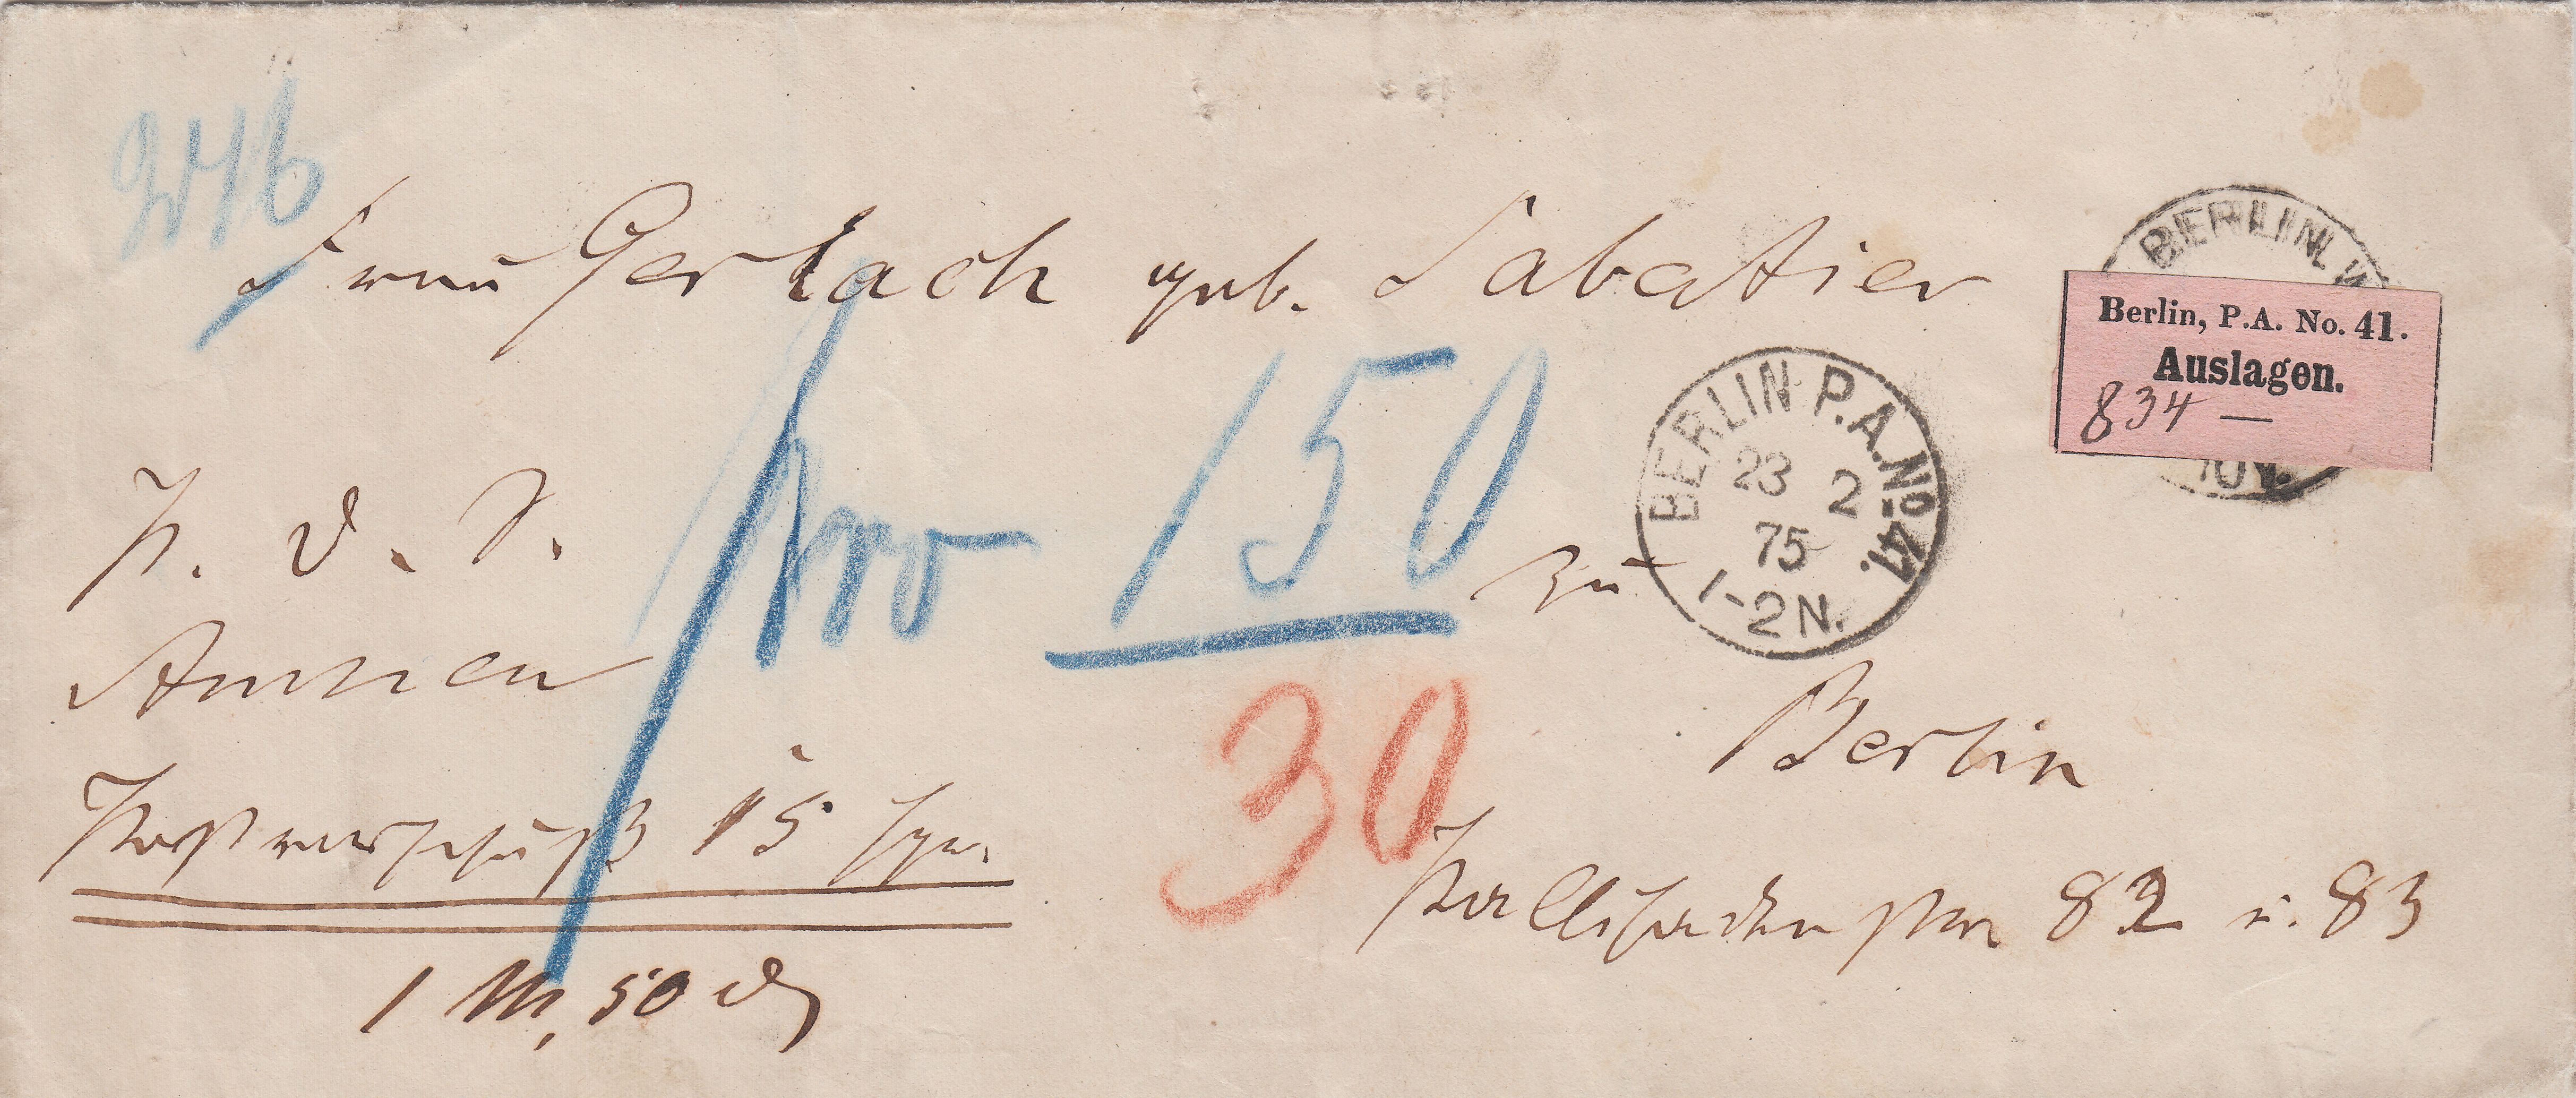 246
Frau Gerlach geb. Sabatier
BERLIN, W
Berlin, P.A. No. 41.
Auslagen.
834 —
10 V.
BERLIN P.A. No 41.
23 2
75
1-2N.
150
zu
P. d. S.
Armen
30
Berlin
Postvorschuß 15 Sgr.
Pallisadenstr 82 u. 83
1 M, 50 d